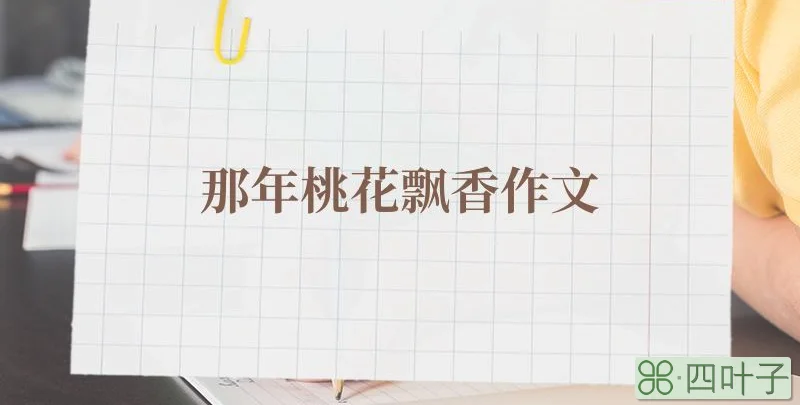 那年桃花飘香作文
四叶子